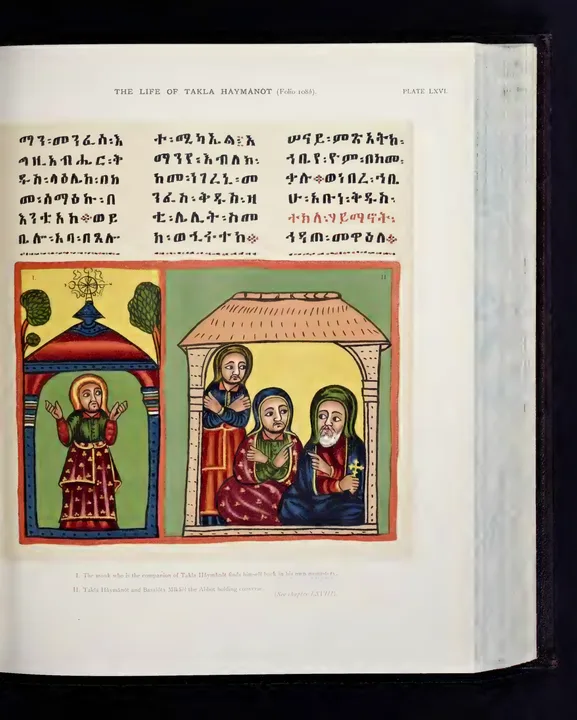 THE LIFE OF TAKLA HAYMANOT (Folio 108b).
PLATE LXVI.
ማን፡መንፈስ፡እ
ግዚአብሔር፡ቅ
ዱስ፡ላዕሌከ፡በከ
መ፡ሰማዕኩ፡በ
እንቲአከ፨ወይ
ቤሎ፡አባ፡በጸሎ
ተ፡ሚካኤል፤አ
ማንየ፡እብለከ፡
ከመ፡ነገረኒ፡መ
ንፈስ፡ቅዱስ፡ዛ
ቲ፡ሌሊት፡ስመ
ከ፡ወፋኖተከ፨
ሠናይ፡ምጽአትከ፡
ኀቤየ፡ዮም፡በከመ፡
ቃሉ፨ወነበረ፡ኀቤ
ሁ፡አቡነ፡ቅዱስ፡
ተክለ፡ሃይማኖት፡
ኅዳጠ፡መዋዕለ፨
I.
II
I. The monk who is the companion of Takla Hâymânôt finds himself back in his own monastery.
II. Takla Hâymânôt and Baṣalôta Mîkâêl the Abbot holding converse.
(See chapter LXVIII).